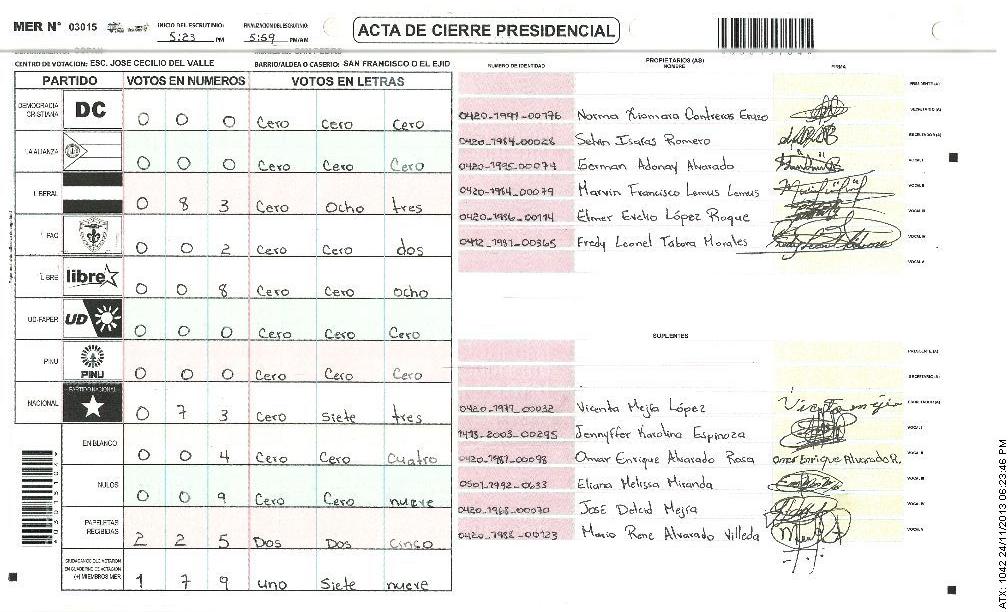 MER N° 03015 INICIO DEL ESCRUTINIO: 5:23 PM FINALIZACION DEL ESCRUTINIO: 5:59 PM/AM ACTA DE CIERRE PRESIDENCIAL
CENTRO DE VOTACION: ESC. JOSE CECILIO DEL VALLE BARRIO/ALDEA O CASERIO: SAN FRANCISCO O EL EJID
PARTIDO VOTOS EN NUMEROS VOTOS EN LETRAS
DEMOCRACIA CRISTIANA DC 0 0 0 Cero Cero Cero
LA ALIANZA 0 0 0 Cero Cero Cero
LIBERAL 0 8 3 Cero Ocho tres
PAC 0 0 2 Cero Cero dos
LIBRE libre 0 0 8 Cero Cero ocho
UD-FAPER UD 0 0 0 Cero Cero Cero
PINU PINU 0 0 0 Cero Cero Cero
NACIONAL PARTIDO NACIONAL 0 7 3 Cero Siete tres
EN BLANCO 0 0 4 Cero Cero Cuatro
NULOS 0 0 9 Cero Cero nueve
PAPELETAS RECIBIDAS 2 2 5 Dos Dos Cinco
CIUDADANOS QUE VOTARON
EN CUADERNO DE VOTACION
(+) MIEMBROS MER 1 7 9 uno Siete nueve
PROPIETARIOS (AS)
NUMERO DE IDENTIDAD NOMBRE FIRMA
PRESIDENTE (A)
0420-1991-00776 Norma Xiomara Contreras Erazo SECRETARIO (A)
0420-1984-00028 Selvin Isaías Romero ESCRUTADOR (A)
0420-1985-00074 German Adonay Alvarado VOCAL I
0420-1984-00079 Marvin Francisco Lemus Lemus VOCAL II
0420-1986-00114 Elmer Evelio López Roque VOCAL III
0412-1981-00365 Fredy Leonel Tabora Morales VOCAL IV
VOCAL V
SUPLENTES
PRESIDENTE (A)
SECRETARIO (A)
0420-1977-00032 Vicenta Mejía López ESCRUTADOR (A)
1413-2003-00295 Jennyffer Karolina Espinoza VOCAL I
0420-1987-00098 Omar Enrique Alvarado Rosa Omar Enrique Alvarado R. VOCAL II
0501-1992-0633 Eliana Melissa Miranda VOCAL III
0420-1968-00070 José Delcid Mejía VOCAL IV
0420-1988-00123 Mario Rene Alvarado Villeda VOCAL V
ATX: 1042 24/11/2013 06:23:46 PM